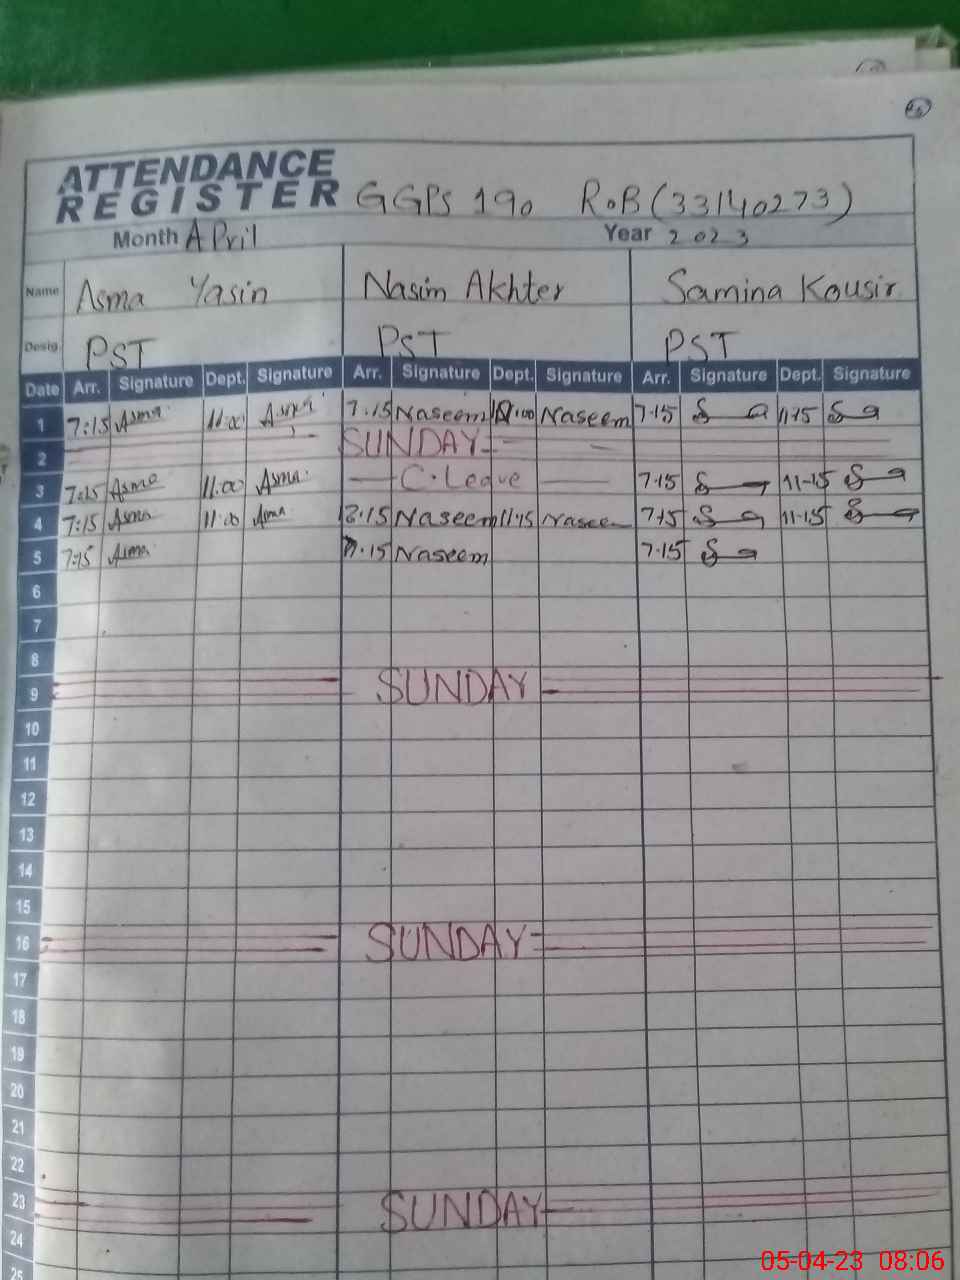 ATTENDANCE
REGISTER GGPS 190 RoB (33140273)
Month April Year 2023
Name Asma Yasin Nasim Akhter Samina Kousir
Desig. PST PST PST
Date Arr. Signature Dept. Signature Arr. Signature Dept. Signature Arr. Signature Dept. Signature
1 7:15 Asma 11:00 Asma 7.15 Naseem Naseem 7.15 11.15
2 SUNDAY
3 7:15 Asma 11:00 Asma C. Leave 7.15 11-15
4 7:15 Asma 11:00 Asma Naseem 11.15 Naseem 7.15 11-15
5 7:15 Asma 7.15 Naseem 7.15
6
7
8
9 SUNDAY
10
11
12
13
14
15
16 SUNDAY
17
18
19
20
21
22
23 SUNDAY
24
25
05-04-23 08:06